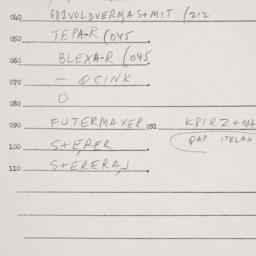 040 681VOLDVERM,AS+MIT (212
050 TEPA-R (045
060 BLEXA-R (045
070 - QCINK
080 O
090 FUTERMAXER 091 KPIRZ+MA
100 S+E,RFR QAP ITELAX
110 S+ERERAJ